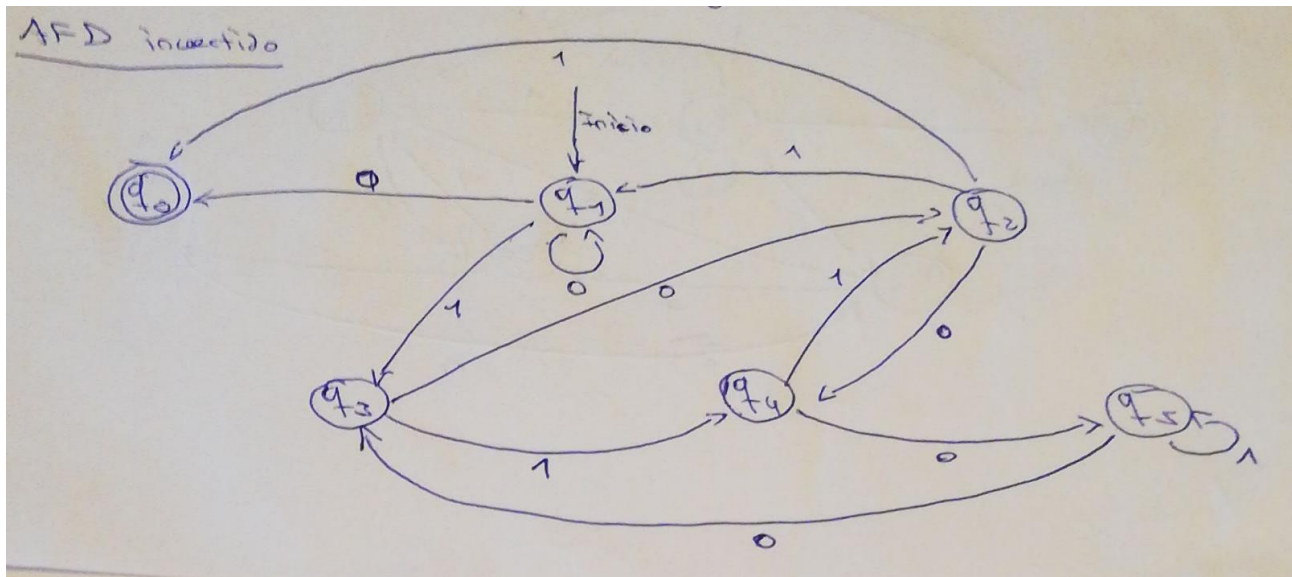 AFD invertido
1
Inicio
1
q0
0
q1
q2
0
0
1
1
0
q3
q4
q5
1
0
1
0